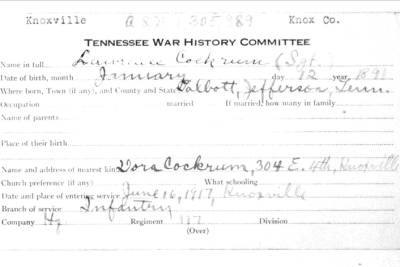 Knoxville ASN 1,305,989 Knox Co.
TENNESSEE WAR HISTORY COMMITTEE
Name in full Lawrence Cockrum (Sgt.)
Date of birth, month January day 12 year 1898
Where born, Town (if any), and County and State Talbott, Jefferson, Tenn.
Occupation married If married, how many in family
Name of parents
Place of their birth
Name and address of nearest kin Dora Cockrum, 304 E. 4th, Knoxville
Church preference (if any) What schooling
Date and place of entering service June 16, 1917, Knoxville
Branch of service Infantry
Company Hq Regiment 117 Division
(Over)